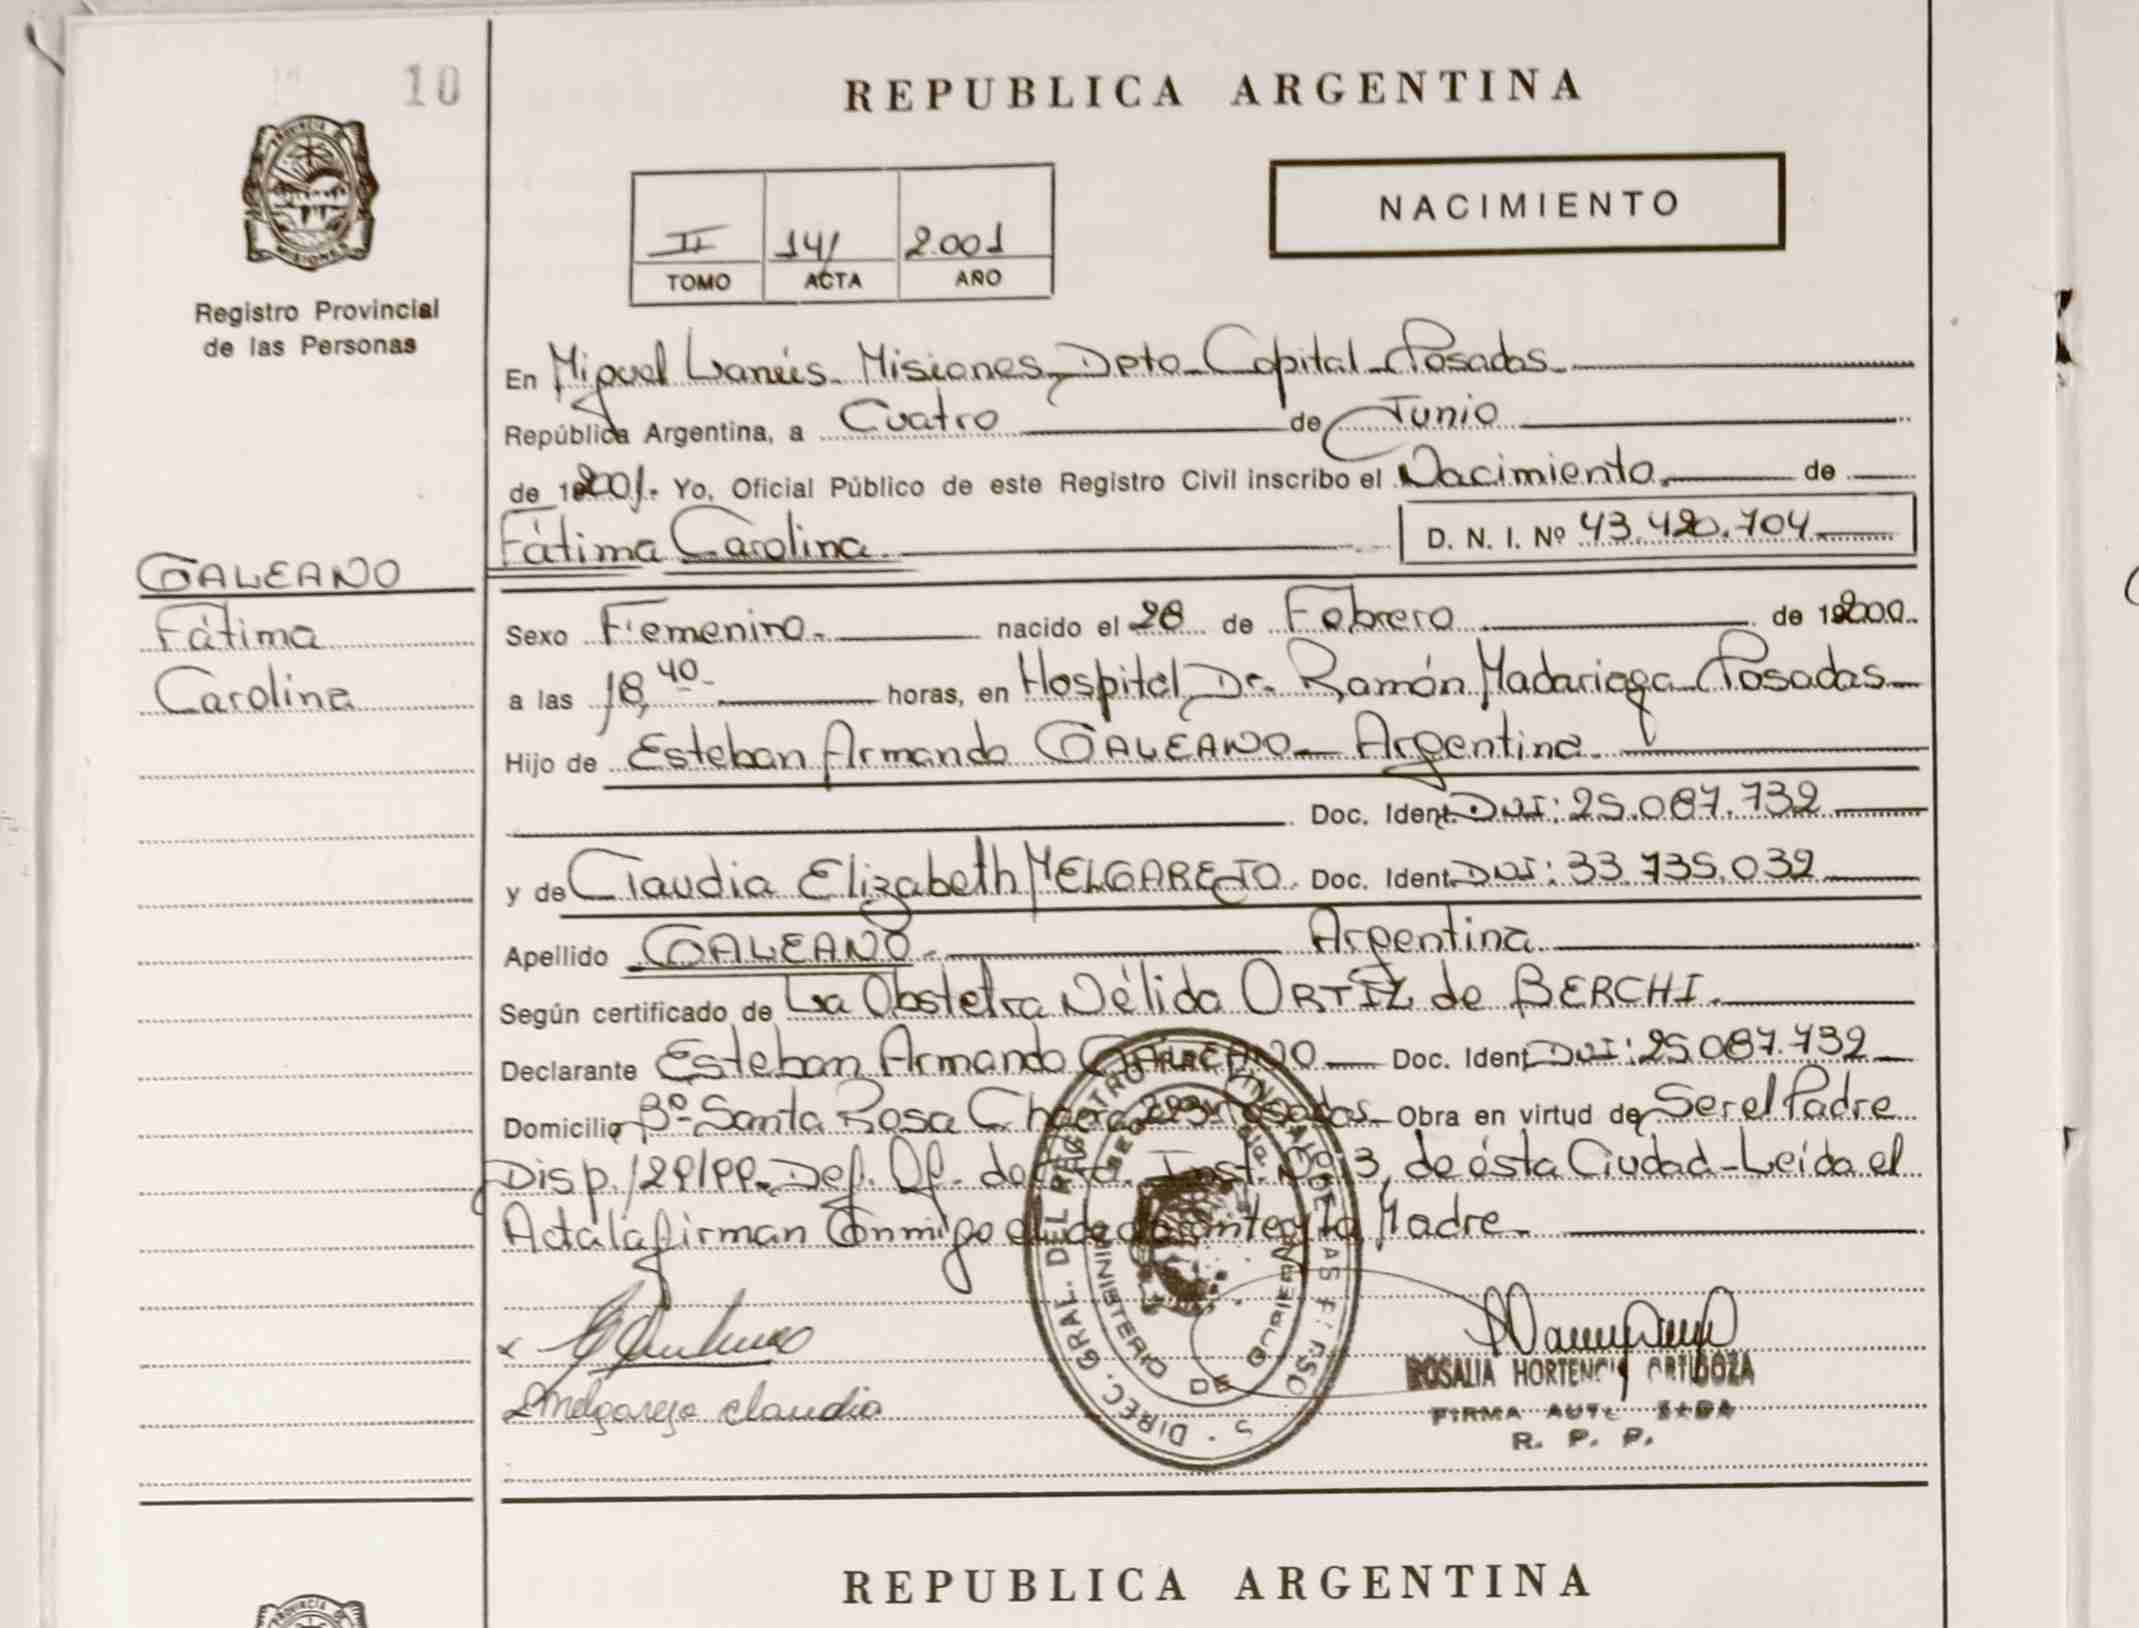 10
REPUBLICA ARGENTINA
PROVINCIA DE MISIONES
Registro Provincial
de las Personas
II 14/ 2.001
TOMO ACTA AÑO
NACIMIENTO
En Miguel Lanús- Misiones, Dpto- Capital- Posadas-
República Argentina, a Cuatro de Junio
de 2001- Yo, Oficial Público de este Registro Civil inscribo el Nacimiento de
Fátima Carolina
D. N. I. Nº 43.420.704
GALEANO
Fátima
Carolina
Sexo Femenino- nacido el 28 de Febrero de 2000.
a las 18,40- horas, en Hospital Dr. Ramón Madariaga- Posadas-
Hijo de Esteban Armando GALEANO- Argentina-
Doc. Ident. DNI: 25.087.732
y de Claudia Elizabeth MELGAREJO. Doc. Ident. DNI: 33.735.032
Apellido GALEANO- Argentina
Según certificado de La Obstetra Nélida ORTIZ de BERCHI.
Declarante Esteban Armando GALEANO- Doc. Ident. DNI: 25.087.732
Domicilio Bº- Santa Rosa Chacra 223- Posadas- Obra en virtud de Ser el Padre
Disp. Def. Of. de Nº 3, de ésta Ciudad- Leida el
Acta la firman Conmigo el declarante y la Madre-
DIREC. GRAL. DEL REGISTRO PROVINCIAL DE LAS PERSONAS
MINISTERIO DE GOBIERNO
Melgarejo Claudia
ROSALIA HORTENCIA ORTIGOZA
FIRMA AUTORIZADA
R. P. P.
REPUBLICA ARGENTINA
PROVINCIA DE